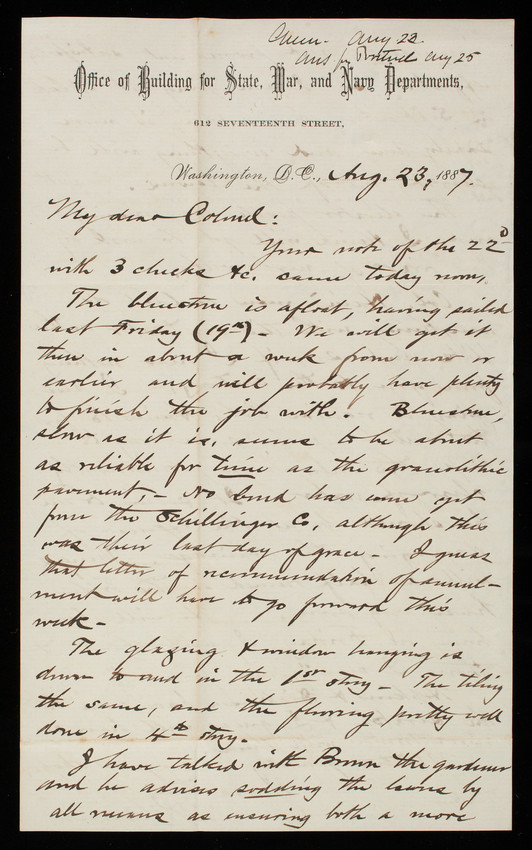 Green - Aug 23
Ans fr Portland Aug 25
Office of Building for State, War, and Navy Departments,
612 SEVENTEENTH STREET,
Washington, D.C., Aug. 23, 1887.
My dear Colonel:
Your note of the 22d
with 3 checks &c. came today noon,
The bluestone is afloat, having sailed
last Friday (19th) - We will get it
then in about a week from now or
earlier and will probably have plenty
to finish the job with. Bluestone,
slow as it is, seems to be about
as reliable for time as the granolithic
pavement, - No bond has come yet
from the Schillinger Co, although this
was their last day of grace - I guess
that letter of recommendation of annul-
ment will have to go forward this
week -
The glazing & window hanging is
down to and in the 1st story - The tiling
the same, and the flooring pretty well
done in 4th story.
I have talked with Brown the gardener
and he advises sodding the lawns by
all means as ensuring both a more